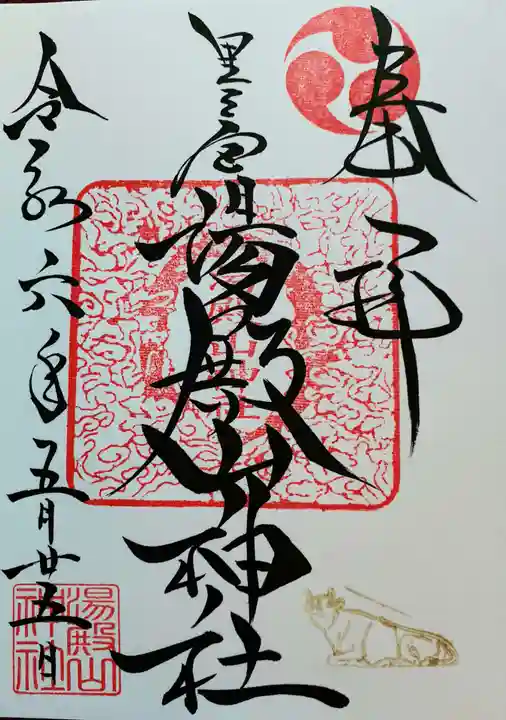 奉拝
里之宮
湯殿山神社
令和六年五月廿五日
湯殿山
神社